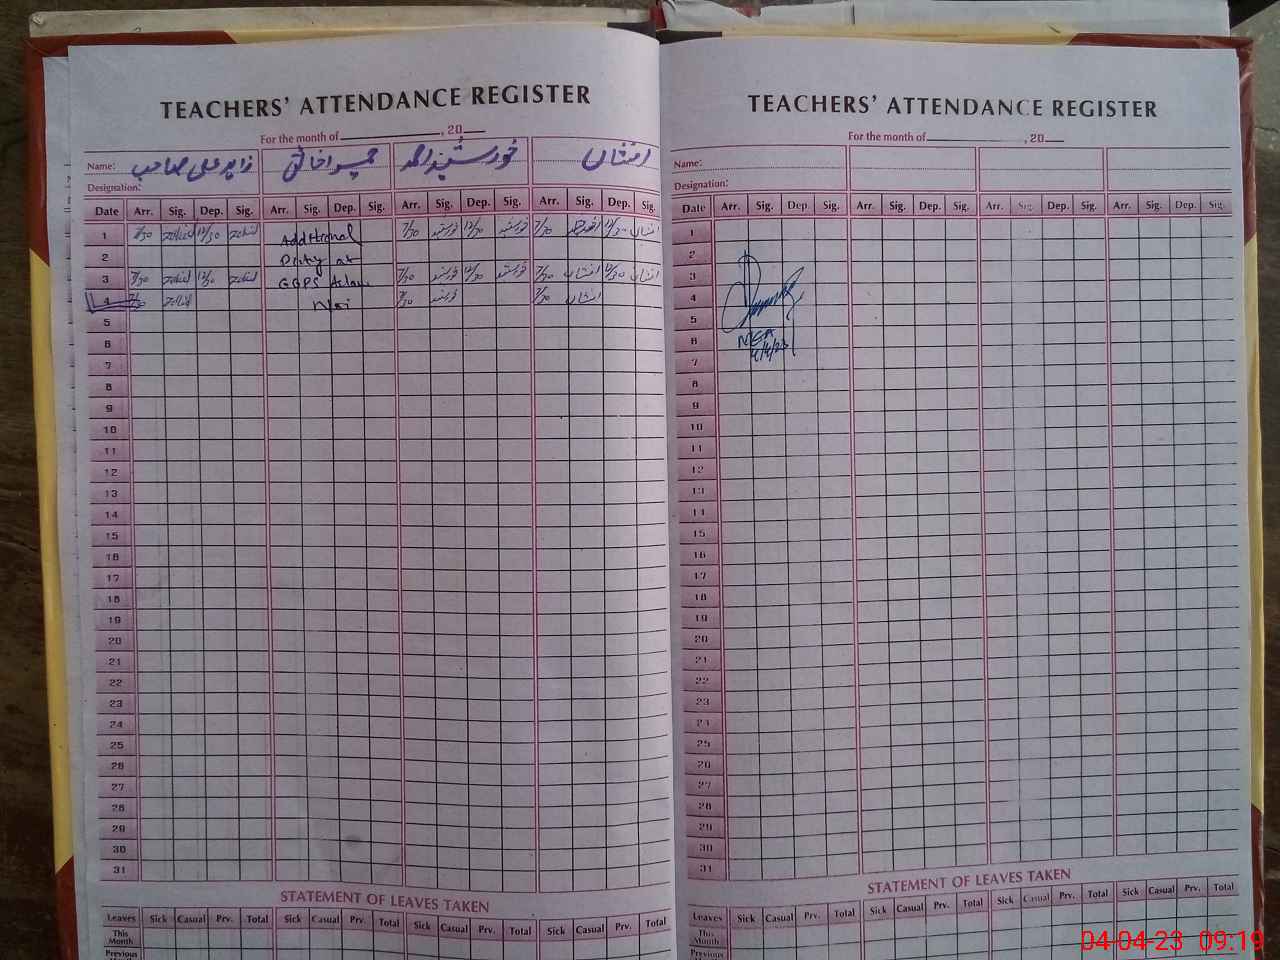 TEACHERS' ATTENDANCE REGISTER
For the month of , 20
Name: زاہد علی صاحب خورشید احمد افشاں
Designation:
Date Arr. Sig. Dep. Sig. Arr. Sig. Dep. Sig. Arr. Sig. Dep. Sig. Arr. Sig. Dep. Sig.
1 7/30 Zahid 12/30 Zahid Additional 7/30 خورشید 12/30 خورشید 7/30 افشاں 12/30 افشاں
2 Duty at
3 7/30 Zahid 12/30 Zahid GGPS 7/30 خورشید 12/30 خورشید 7/30 افشاں 12/30 افشاں
4 7/30 Zahid 7/30 خورشید 7/30 افشاں
5
6
7
8
9
10
11
12
13
14
15
16
17
18
19
20
21
22
23
24
25
26
27
28
29
30
31
STATEMENT OF LEAVES TAKEN
Leaves Sick Casual Prv. Total Sick Casual Prv. Total Sick Casual Prv. Total Sick Casual Prv. Total
This Month
Previous
TEACHERS' ATTENDANCE REGISTER
For the month of , 20
Name:
Designation:
Date Arr. Sig. Dep. Sig. Arr. Sig. Dep. Sig. Arr. Sig. Dep. Sig. Arr. Sig. Dep. Sig.
1
2
3
4
5
6
MEA
7
4/4/23
8
9
10
11
12
13
14
15
16
17
18
19
20
21
22
23
24
25
26
27
28
29
30
31
STATEMENT OF LEAVES TAKEN
Leaves Sick Casual Prv. Total Sick Casual Prv. Total Sick Casual Prv. Total Sick Casual Prv. Total
This Month
Previous
04-04-23 09:19